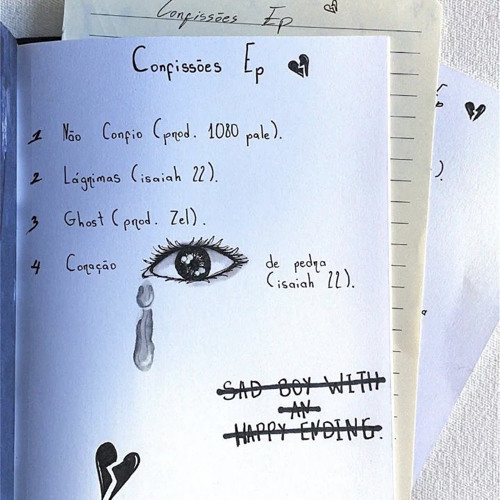 Confissões Ep
Confissões Ep
1 Não Confio (prod. 1080 pale).
2 Lágrimas (isaiah 22).
3 Ghost (prod. Zel).
4 Coração de pedra
(isaiah 22).
SAD BOY WITH
AN
HAPPY ENDING.